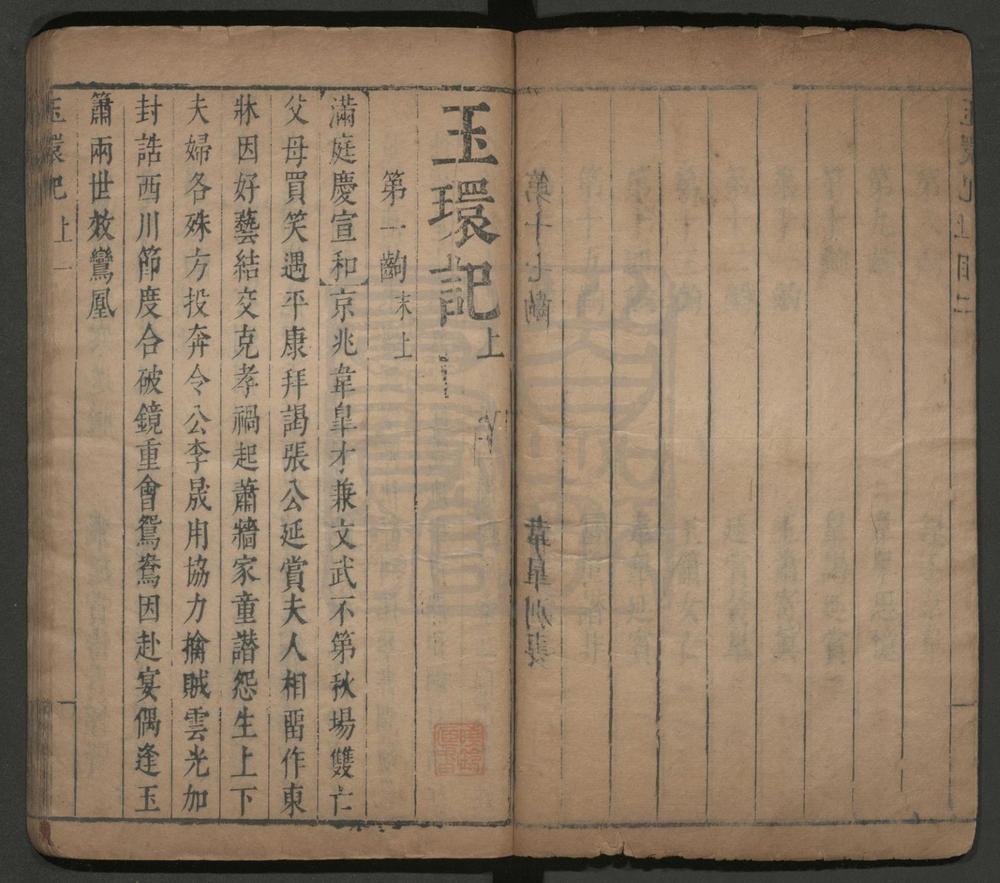 玉環記上目二
第十七齣
韋臯別妻
玉環記上
第一齣末上
滿庭慶宣和京兆韋臯才兼文武不第秋場雙亡
父母買笑遇平康拜謁張公延賞夫人相畱作東
牀因好藝結交克孝禍起蕭牆家童譖怨生上下
夫婦各殊方投奔令公李晟用協力擒賊雲光加
封誥西川節度合破鏡重會鴛鴦因赴宴偶逢玉
簫兩世效鸞凰
玉環記上一